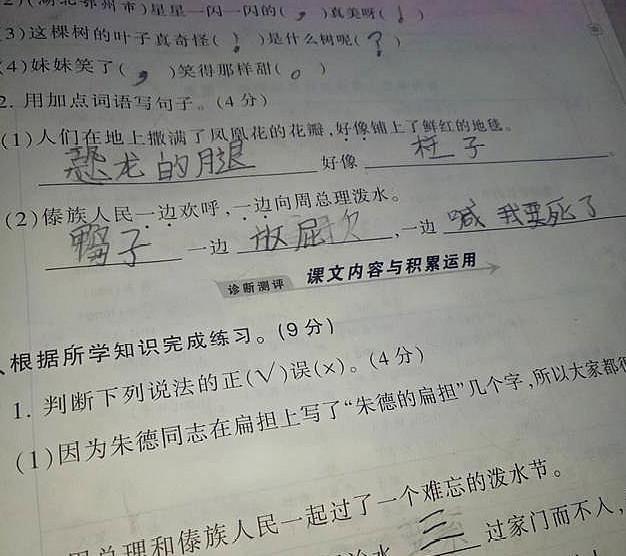 2)(湖北鄂州市)星星一闪一闪的( , )真美呀( ! )
(3)这棵树的叶子真奇怪( ! )是什么树呢( ? )
(4)妹妹笑了( , )笑得那样甜( 。 )
2. 用加点词语写句子。(4分)
(1)人们在地上撒满了凤凰花的花瓣,好像铺上了鲜红的地毯。
恐龙的腿 好像 柱子 。
(2)傣族人民一边欢呼,一边向周总理泼水。
鸭子 一边 放屁 ,一边 喊我要死了
诊断测评 课文内容与积累运用
、根据所学知识完成练习。(9分)
1. 判断下列说法的正(√)误(×)。(4分)
(1)因为朱德同志在扁担上写了“朱德的扁担”几个字,所以大家都
总理和傣族人民一起过了一个难忘的泼水节。
水 三 过家门而不入,